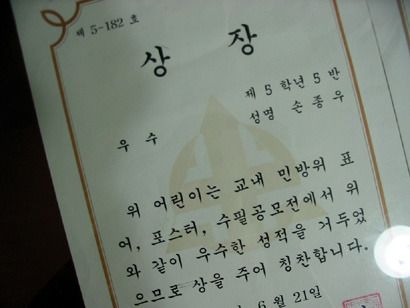 제 5-182 호
상 장
제 5 학년 5 반
성명 손종우
우 수
위 어린이는 교내 민방위 표
어, 포스터, 수필공모전에서 위
와 같이 우수한 성적을 거두었
으므로 상을 주어 칭찬합니다.
6 월 21일